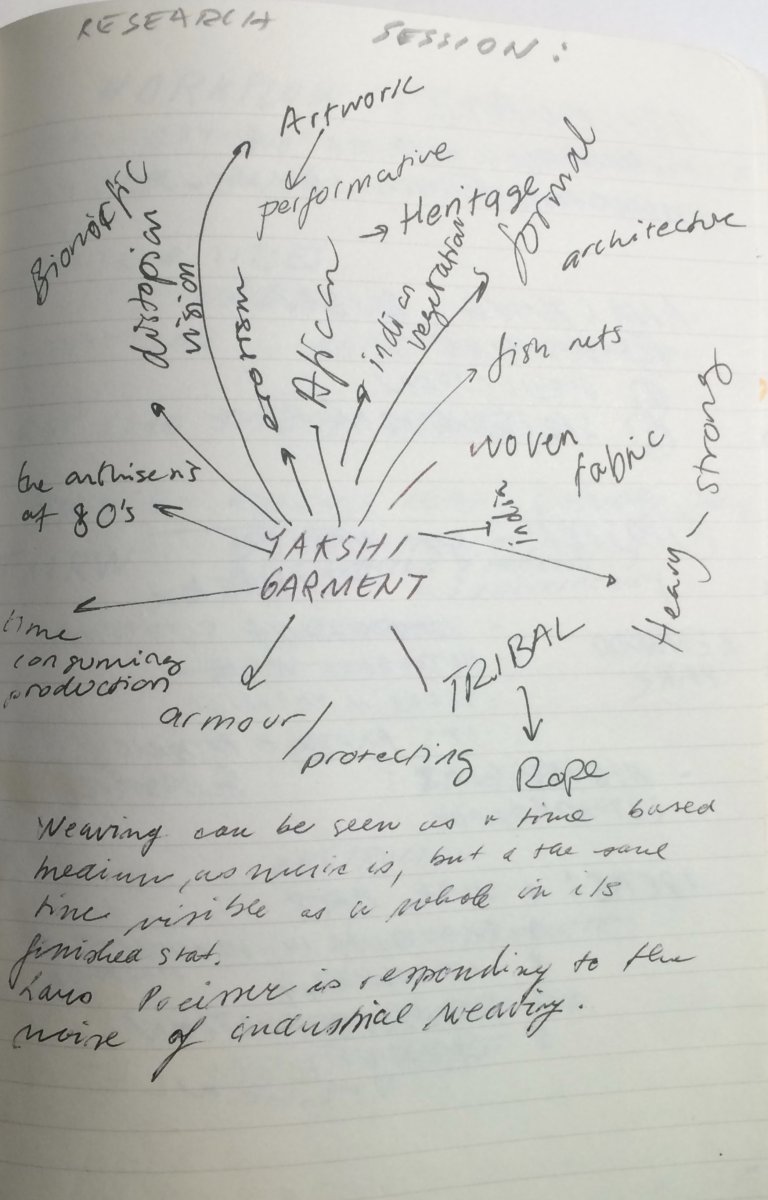 RESEARCH SESSION:
Artwork
performative
→ Heritage
formal
architecture
distopian
vision
erorism
African
indian
vegetation
fish nets
woven
fabric
india
Heavy – strong
the
of 80's
YAKSHI
GARMENT
time
consuming
production
armour/
protecting
TRIBAL
Rope
Weaving can be seen as a time based
medium, as music is, but a the same
time visible as a whole in its
finished stat.
is responding to the
noise of industrial weaving.